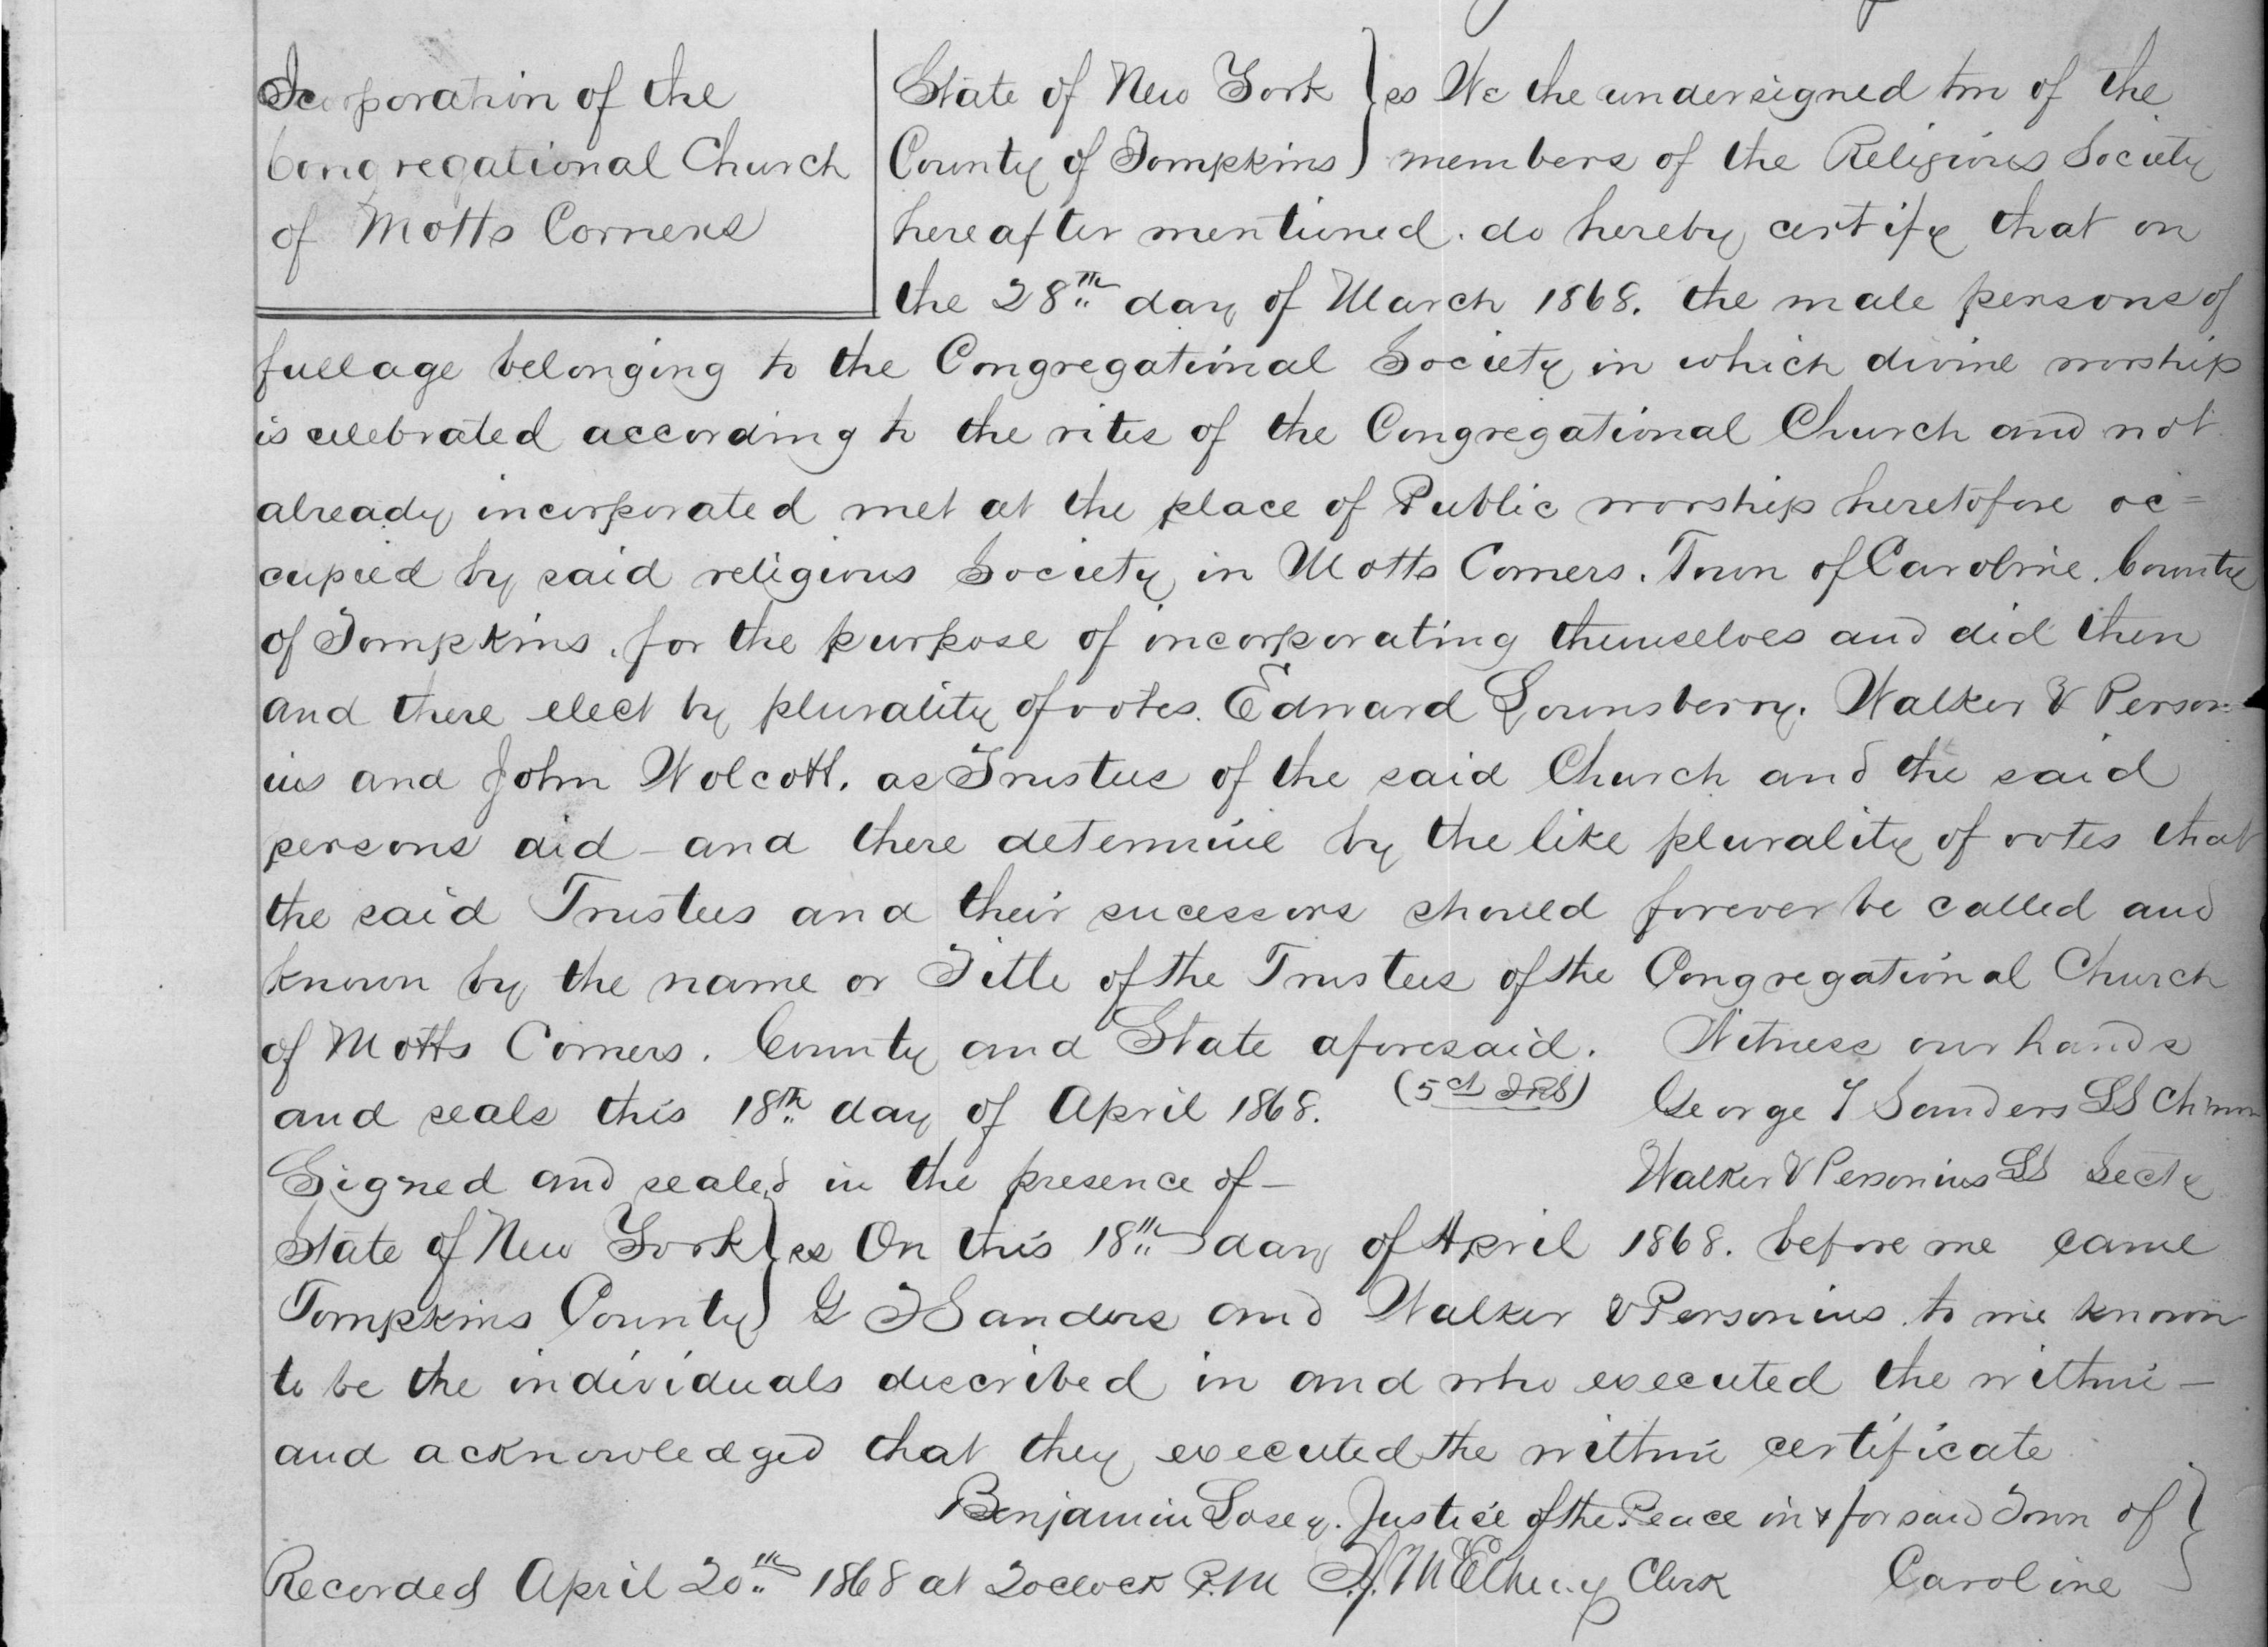 Icorporation of the
Congregational Church
of Motts Corners
State of New York } ss We the undersigned two of the
County of Tompkins } members of the Religious Society
hereafter mentioned. do hereby certify that on
the 28th day of March 1868. the male persons of
full age belonging to the Congregational Society in which divine worship
is celebrated according to the rites of the Congregational Church and not
already incorporated met at the place of Public worship heretofore oc=
cupied by said religious Society in Motts Corners. Town of Caroline. County
of Tompkins. for the purpose of incorporating themselves and did then
and there elect by plurality of votes. Edward Lounsberry. Walker V Person-
ius and John Wolcott. as Trustees of the said Church and the said
persons did - and there determine by the like plurality of votes that
the said Trustees and their sucessors should forever be called and
known by the name or Title of the Trustees of the Congregational Church
of Motts Corners. County and State aforesaid. Witness our hands
and seals this 18th day of April 1868. (5 ct IRS) George T Sanders LS Chirmn
Signed and sealed in the presence of - Walker V Personius LS Secty
State of New York } ss On this 18th day of April 1868. before me came
Tompkins County } G T Sanders and Walker V Personius to me known
to be the individuals described in and who executed the within -
and acknowledged that they executed the within certificate
Benjamin Losey. Justice of the Peace in & for said Town of }
Recorded April 20th 1868 at 2 oclock P.M Clerk Caroline